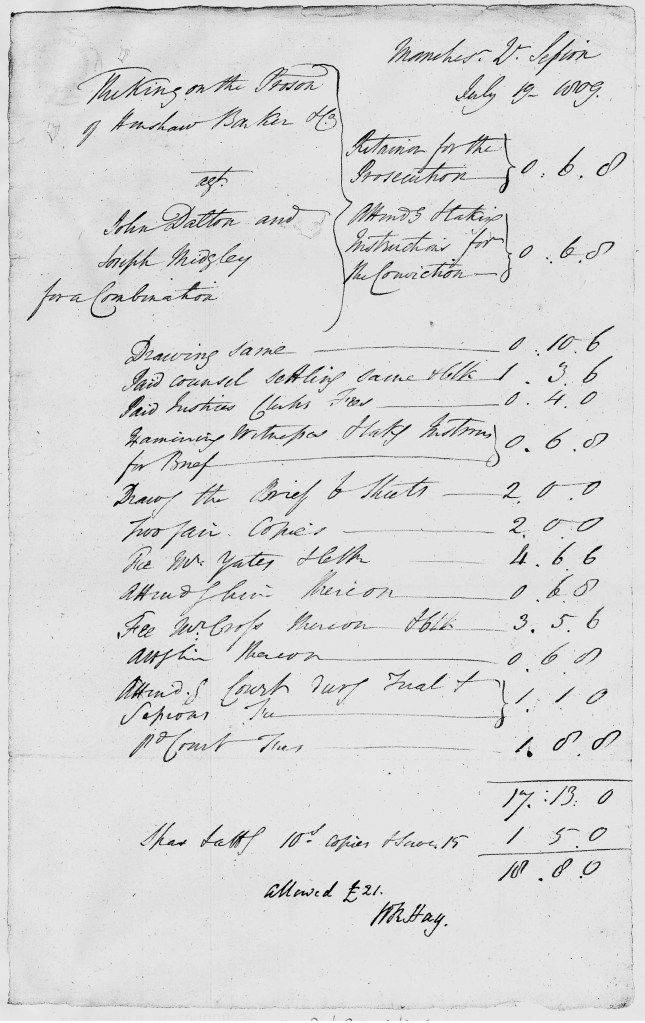 Manches. Qr. Session
July 19 - 1809.
The King on the Proson
of Henshaw Barker & Co
agt.
John Dalton and
Joseph Midgley
for a Combination
Retainer for the
Prosecution 0 : 6 . 8
Attendg & taking
Instructions for
the Conviction 0 . 6 . 8
Drawing same 0 . 10 . 6
Paid counsel settling same & Clk 1 . 3 . 6
Paid Justices Clerks Fees 0 . 4 . 0
Examining Witnesses & takg Instrons
for Brief 0 . 6 . 8
Drawg the Brief 6 Sheets 2 . 0 . 0
Two fair Copies 2 . 0 . 0
Fee Mr. Yates & Clk 4 . 6 . 6
Attendg him thereon 0 . 6 8
Fee Mr. Cross thereon & Clk 3 . 5 . 6
Attg him thereon 0 . 6 . 8
Attendg Court durg Trial &
Sessions Fee 1 . 1 . 0
Pd Court Fees 1 . 8 . 8
17 . : 13 . 0
10s copies & Serve 15 1 5 . 0
18 . 8 . 0
allowed £21.
WR Hay.